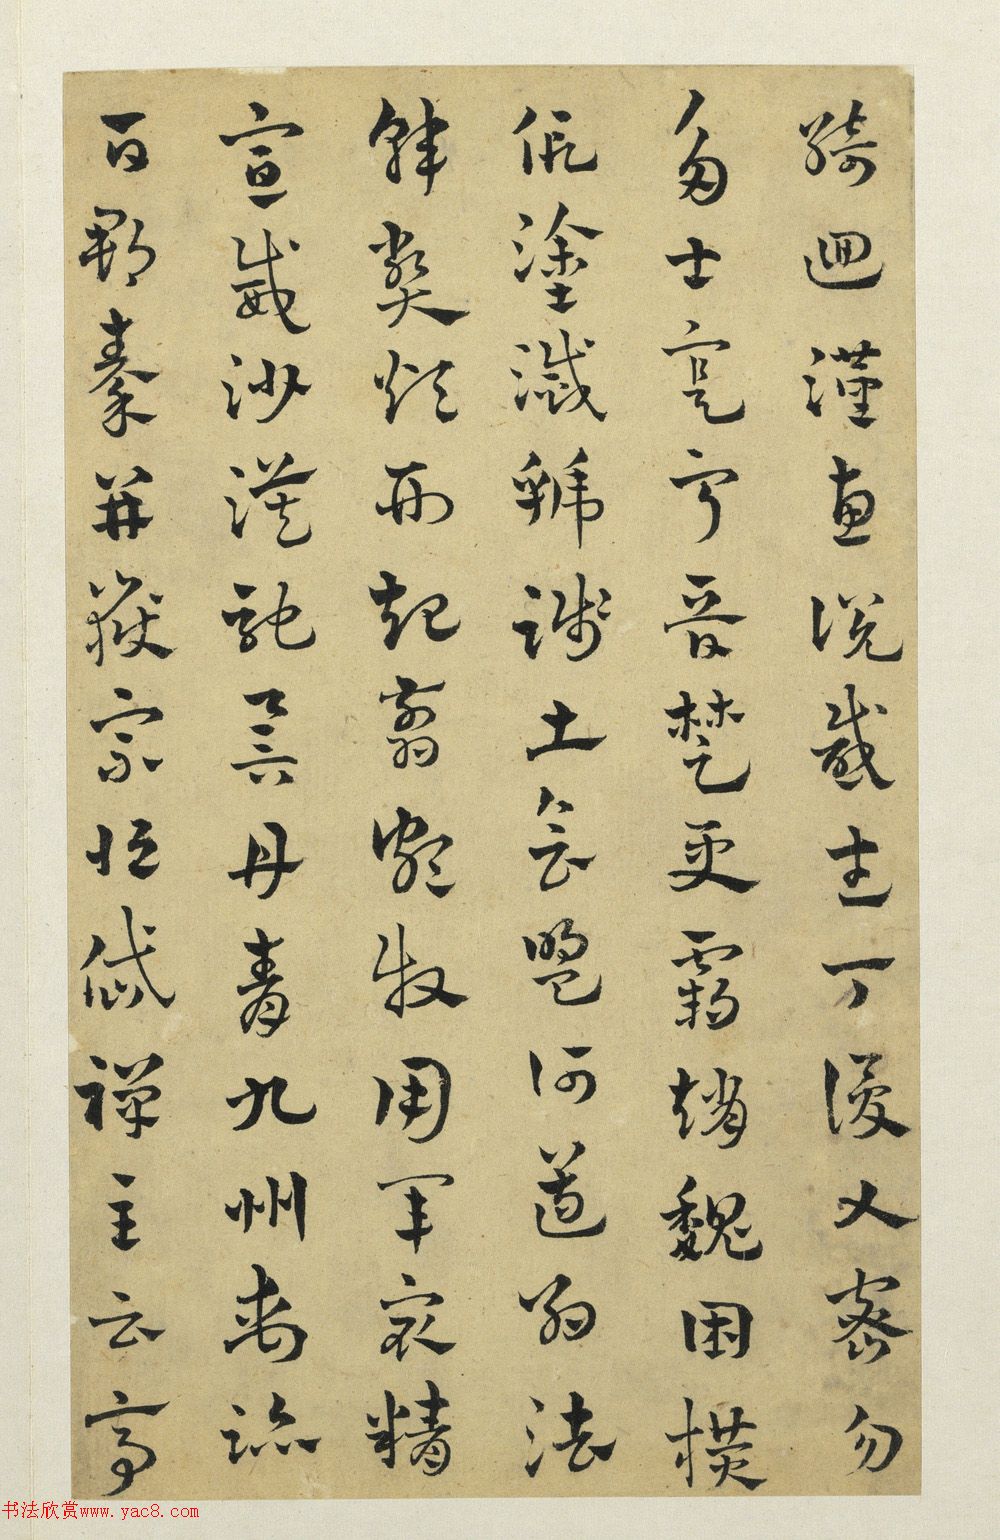 綺迴漢惠説感武丁俊乂密勿
多士寔寧晉楚更霸趙魏困橫
假塗滅虢踐土會盟何遵約法
韓弊煩刑起翦頗牧用軍最精
宣威沙漠馳譽丹青九州禹跡
百郡秦并嶽宗恒岱禪主云亭
书法欣赏www.yac8.com